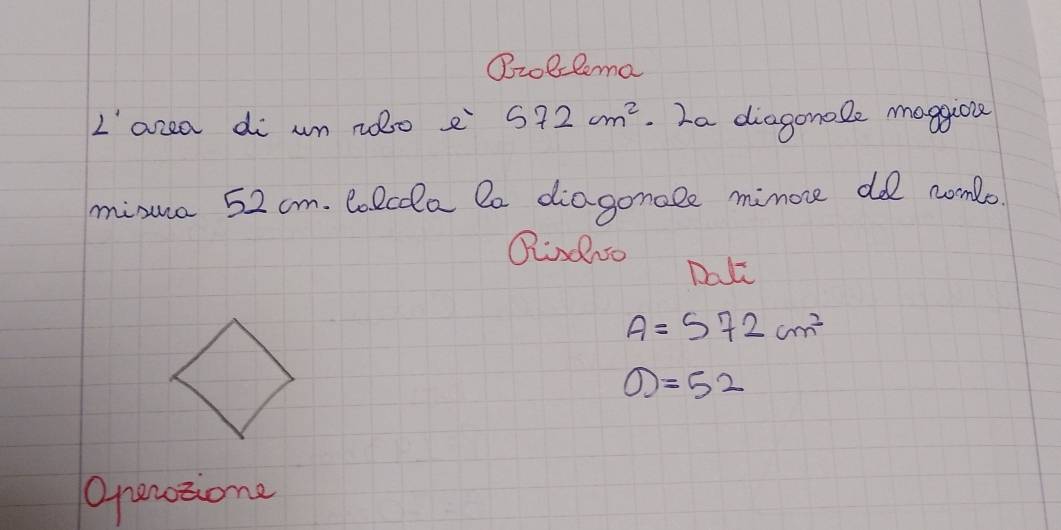 Problema
L'area di un robo è 572 cm². La diagonale maggiore
misura 52 cm. Calcola la diagonale minore del rombo.
Risolvo
Dati
A = 572 cm²
D = 52
Operazione